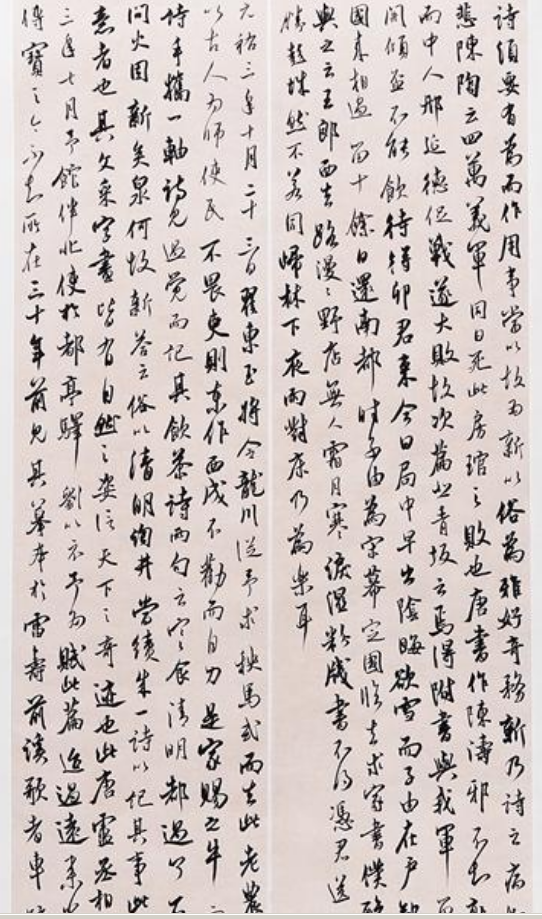 詩須要有為而作用事當以故為新以俗為雅好奇務新乃詩之病
悲陳陶云四萬義軍同日死此房琯之敗也唐書作陳濤邪不知
而中人邢延德促戰遂大敗故次篇悲青坂云焉得附書與我軍
閑傾盃不能飲待得卯君來今日局中早出陰晦欲雪而子由在戶部
國來相過留十餘日還南都時子由為宋幕定國臨去求家書僕醉
與之云王郎西去路漫漫野店無人霜月寒淚濕粉牋書不得憑君送
勝彭城然不若同歸林下夜雨對床乃為樂耳
元祐三年十月二十三日翟東玉將令龍川從予求秧馬式而去此老農
以古人為師使民不畏吏則東作西成不勸而自力是家賜之牛
詩手攜一軸詩見過覺而記其飲茶詩兩句云寒食清明都過了石
問火固新矣泉何故新答云俗以清明淘井當續成一詩以記其事此
意者也其文采字畫皆有自然之姿信天下之奇迹也此唐盧丞相
三年七月予館伴北使於都亭驛劉以示予為賦此篇過遠來
傳寶之今不知所在三十年前見其摹本於雷壽前溪歌者車